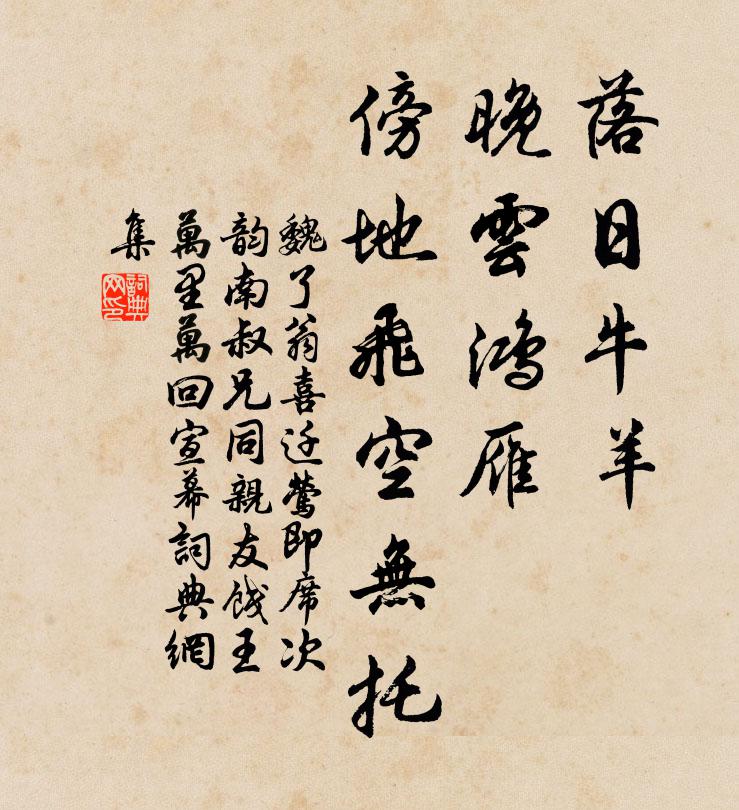 落日牛羊
晚雲鴻雁
傍地飛空無托
魏了翁喜迁鶯即席次
韵南叔兄同親友餞王
萬里萬回宣幕詞典網
集
詞典网印